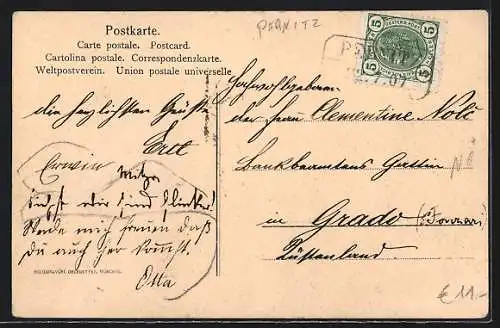 Postkarte.
Carte postale. Postcard.
Cartolina postale. Correspondenzkarte.
Weltpostverein. Union postale universelle.
PERNITZ
5 5
5 5
die herzlichsten Grüße
Erwin
Mitzi
Siehst wir sind flinker!
Werde mich freuen daß
Du auch her kommst.
Otta
Hochwohlgeboren
der Frau Clementine
Bankbeamtens Gattin
in Grado
Küstenland.
€11.-